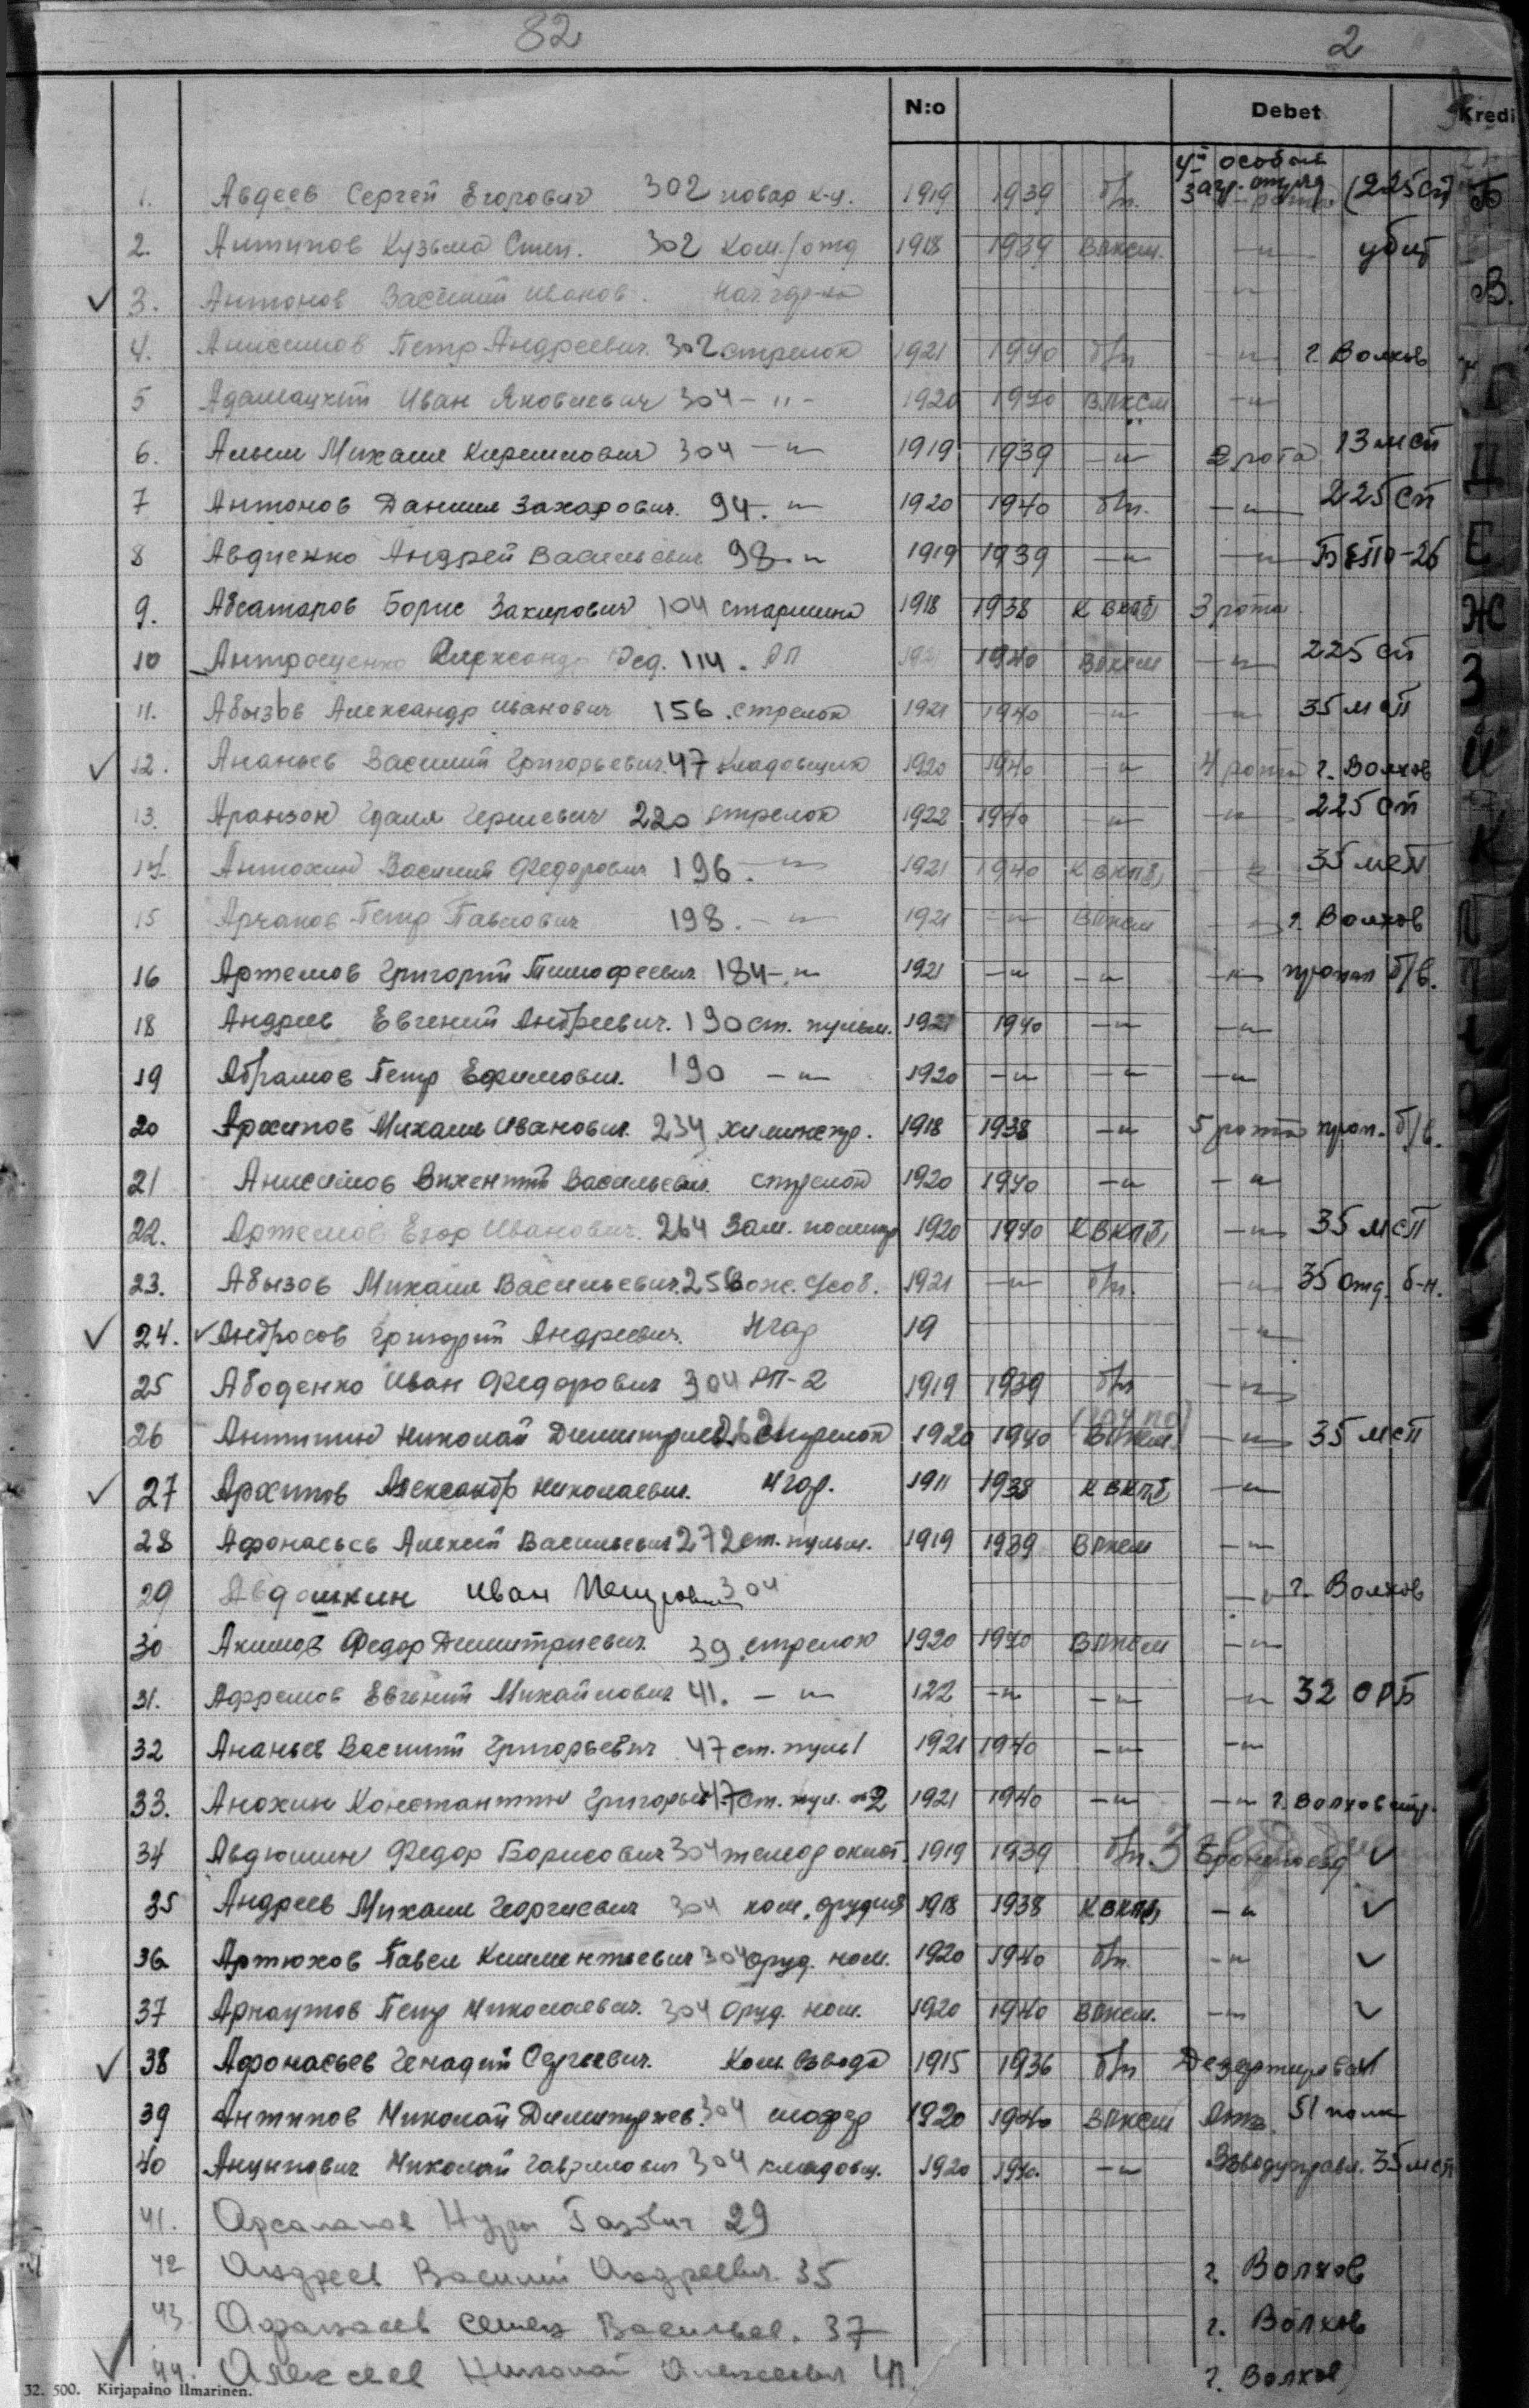 82 2
N:o Debet Kredi
4-й особый
1. Авдеев Сергей Егорович 302 повар к-ч. 1919 1939 б/п. Загр. отряд (225 сп) Б
2. Антипов Кузьма Степ. 302 Ком./отд 1918 1939 ВЛКСМ. —"— убит
✓ 3. Антонов Василий Иванов. —"— В.
4. Анисимов Петр Андреевич. 302 стрелок 1921 1940 б/п —"— г. Волхов Г
5 Адамацкий Иван Яковлевич 304 — " — 1920 1940 ВЛКСМ —"—
6. Алыш Михаил Кириллович 304 —"— 1919 1939 —"— 2 рота 13 мсп Д
7 Антонов Даниил Захарович. 94. —"— 1920 1940 б/п. —"— 225 сп
8 Авдиенко Андрей Васильевич 98. —"— 1919 1939 —"— —"— Е
9. Абсатаров Борис Закирович 104 старшина 1918 1938 К ВКП(б) 3 рота Ж
10 Антрощенко Александр Фед. 114. РП 1921 1940 ВЛКСМ —"— 225 сп З
11. Абызов Александр Иванович 156. стрелок 1921 1940 —"— —"— 35 мсп
✓ 12. Ананьев Василий Григорьевич. 47 Кладовщик 1920 1940 —"— 4 рота г. Волхов И
13. Аранзон Гдаля Гершевич 220 стрелок 1922 1940 —"— —"— 225 сп
14 Антохин Василий Федорович 196. —"— 1921 1940 К ВКП(б) —"— 35 мсп К
15 Арчаков Петр Павлович 198. —"— 1921 —"— ВЛКСМ —"— г. Волхов
16 Артемов Григорий Тимофеевич 184 —"— 1921 —"— —"— —"— пропал б/в.
18 Андреев Евгений Андреевич. 190 ст. пульм. 1921 1940 —"— —"—
19 Абрамов Петр Ефимович. 190 —"— 1920 —"— —"— —"—
20 Архипов Михаил Иванович. 234 химинстр. 1918 1938 —"— 5 рота проп. б/в.
21 Анисимов Викентий Васильевич. стрелок 1920 1940 —"— —"—
22. Артемов Егор Иванович. 264 Зам. политр 1920 1940 К ВКП(б) —"— 35 мсп
23. Абызов Михаил Васильевич. 256 1921 —"— б/п. —"— 35 отд. б-н.
✓ 24. ✓ Андросов Григорий Андреевич. 19 —"—
25 Абоденко Иван Федорович 304 РП-2 1919 1939 б/п —"—
26 Антипин Николай Димитриев. стрелок 1920 1940 ВЛКСМ —"— 35 мсп
✓ 27 Архипов Александр Николаевич. 1911 1938 К ВКП(б) —"—
28 Афонасьев Алексей Васильевич 272 ст. пульм. 1919 1939 ВЛКСМ —"—
29 Авдошкин Иван Петрович 304 —"— г. Волхов
30 Акимов Федор Димитриевич. 39. стрелок 1920 1940 ВЛКСМ —"—
31. Афремов Евгений Михайлович 41. —"— 122 —"— —"— —"— 32 ОРБ
32 Ананьев Василий Григорьевич 47 ст. пуль 1 1921 1940 —"— —"—
33. Анохин Константин Григорьев 47 ст. пул. 2 1921 1940 —"— —"— г. Волхов
34 Авдюшин Федор Борисович 304 1919 1939 б/п. Бронепоезд ✓
35 Андреев Михаил Георгиевич 304 ком. орудия 1918 1938 К ВКП(б) —"— ✓
36 Артюхов Павел Климентьевич 304 оруд. ном. 1920 1940 б/п. —"— ✓
37 Арнаутов Петр Николаевич. 304 оруд. ном. 1920 1940 ВЛКСМ. —"— ✓
✓ 38 Афонасьев Генадий Сергеевич. Ком. взвода 1915 1936 б/п Дезертировал
39 Антипов Николай Димитриев. 304 шофер 1920 1940 ВЛКСМ 51 полк
40 Анципович Николай Гаврилович 304 кладовщ. 1920 1940. —"— Взвод управл. 35 мсп
41. Арсаланов Нури 29
42 Андреев Василий Андреевич. 35 г. Волхов
43 Афанасьев Семен Васильев. 37 г. Волхов
✓ 44. Алексеев Николай Алексеевич 41 г. Волхов
32. 500. Kirjapaino Ilmarinen.